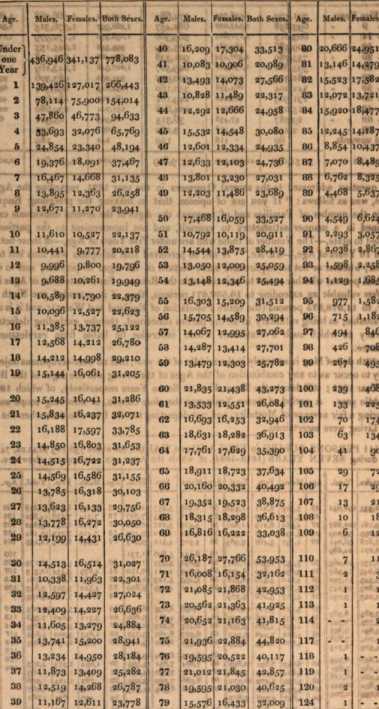 Age. Males. Females. Both Sexes.
Under one Year 436,946 341,137 778,083
1 139,426 127,017 266,443
2 78,114 75,900 154,014
3 47,860 46,773 94,633
4 33,693 32,076 65,769
5 24,854 23,340 48,194
6 19,376 18,091 37,467
7 16,467 14,668 31,135
8 13,895 12,363 26,258
9 12,671 11,270 23,941
10 11,610 10,527 22,137
11 10,441 9,777 20,218
12 9,996 9,800 19,796
13 9,688 10,261 19,949
14 10,589 11,790 22,379
15 10,096 12,527 22,623
16 11,385 13,737 25,122
17 12,568 14,212 26,780
18 14,212 14,998 29,210
19 15,144 16,061 31,205
20 15,245 16,041 31,286
21 15,834 16,237 32,071
22 16,188 17,597 33,785
23 14,850 16,803 31,653
24 14,515 16,722 31,237
25 14,569 16,586 31,155
26 13,785 16,318 30,103
27 13,623 16,133 29,756
28 13,778 16,272 30,050
29 12,199 14,431 26,630
30 14,513 16,514 31,027
31 10,338 11,963 22,301
32 12,597 14,427 27,024
33 12,409 14,227 26,636
34 11,605 13,279 24,884
35 13,741 15,200 28,941
36 13,234 14,950 28,184
37 11,873 13,409 25,282
38 12,519 14,268 26,787
39 11,167 12,611 23,778
Age. Males. Females. Both Sexes.
40 16,209 17,304 33,513
41 10,083 10,906 20,989
42 13,493 14,073 27,566
43 10,828 11,489 22,317
44 12,292 12,666 24,958
45 15,532 14,548 30,080
46 12,601 12,334 24,935
47 12,633 12,103 24,736
48 13,801 13,230 27,031
49 12,203 11,486 23,689
50 17,468 16,059 33,527
51 10,792 10,119 20,911
52 14,544 13,875 28,419
53 13,050 12,009 25,059
54 13,148 12,346 25,494
55 16,303 15,209 31,512
56 15,705 14,589 30,294
57 14,067 12,995 27,062
58 14,287 13,414 27,701
59 13,479 12,303 25,782
60 21,835 21,438 43,273
61 13,533 12,551 26,084
62 16,693 16,253 32,946
63 18,631 18,282 36,913
64 17,761 17,629 35,390
65 18,911 18,723 37,634
66 20,160 20,332 40,492
67 19,352 19,523 38,875
68 18,315 18,298 36,613
69 16,816 16,222 33,038
70 26,187 27,766 53,953
71 16,008 16,154 32,162
72 21,085 21,868 42,953
73 20,562 21,363 41,925
74 20,652 21,163 41,815
75 21,936 22,884 44,820
76 19,595 20,522 40,117
77 21,012 21,845 42,857
78 19,595 21,030 40,625
79 15,576 16,433 32,009
Age. Males. Females.
80 20,666 24,951
81 13,146 14,279
82 15,523 17,582
83 12,072 13,721
84 15,920 18,477
85 12,245 14,287
86 8,854 10,437
87 7,070 8,485
88 6,762 8,325
89 4,468 5,637
90 4,549 6,624
91 2,293 3,057
92 2,038
93 1,598
94 1,129
95 977
96 715
97 494
98 426
99 267
100 239
101 133
102 70
103 63
104 41
105 29
106 17
107 13
108 10
109 6
110 7
111 2
112 1
113 1
114 - -
117 - -
118 1
119 1
120 2
124 1